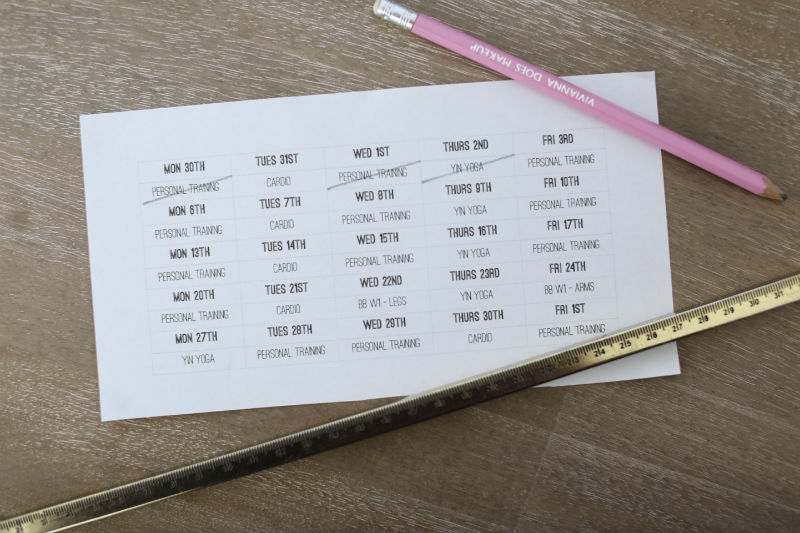 VIVIANNA DOES MAKEUP
MON 30TH TUES 31ST WED 1ST THURS 2ND FRI 3RD
PERSONAL TRAINING CARDIO PERSONAL TRAINING YIN YOGA PERSONAL TRAINING
MON 6TH TUES 7TH WED 8TH THURS 9TH FRI 10TH
PERSONAL TRAINING CARDIO PERSONAL TRAINING YIN YOGA PERSONAL TRAINING
MON 13TH TUES 14TH WED 15TH THURS 16TH FRI 17TH
PERSONAL TRAINING CARDIO PERSONAL TRAINING YIN YOGA PERSONAL TRAINING
MON 20TH TUES 21ST WED 22ND THURS 23RD FRI 24TH
PERSONAL TRAINING CARDIO BB W1 - LEGS YIN YOGA BB W1 - ARMS
MON 27TH TUES 28TH WED 29TH THURS 30TH FRI 1ST
YIN YOGA PERSONAL TRAINING PERSONAL TRAINING CARDIO PERSONAL TRAINING